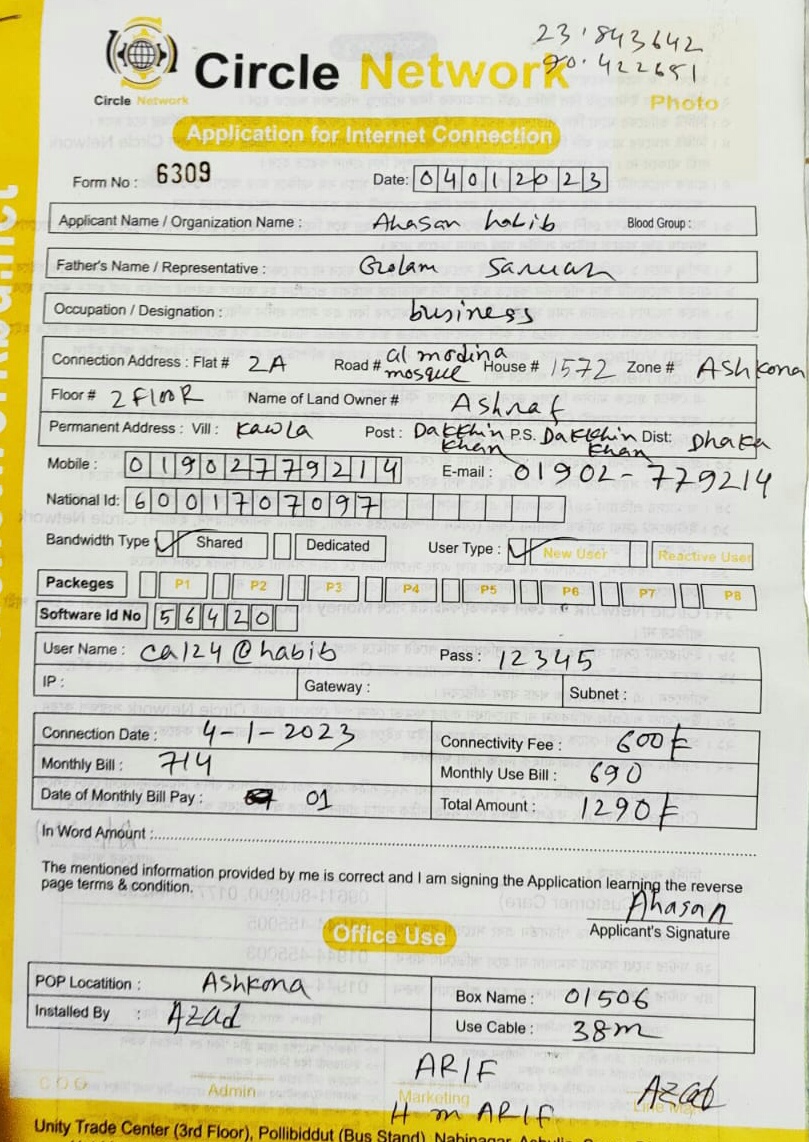 23.843642
90.422651
Circle Network
Circle Network
Photo
Application for Internet Connection
Form No : 6309 Date: 04012023
Applicant Name / Organization Name : Ahasan habib Blood Group :
Father's Name / Representative : Golam Sarwar
Occupation / Designation : business
Connection Address : Flat # 2A Road # al modina mosque House # 1572 Zone # Ashkona
Floor # 2 flooR Name of Land Owner # Ashraf
Permanent Address : Vill : Kawla Post : Dakkhin Khan P.S. Dakkhin Khan Dist: Dhaka
Mobile : 01902779214 E-mail : 01902-779214
National Id: 6001707097
Bandwidth Type Shared Dedicated User Type : New User Reactive User
Packeges P1 P2 P3 P4 P5 P6 P7 P8
Software Id No 56420
User Name : ca124@habib Pass : 12345
IP : Gateway : Subnet :
Connection Date : 4-1-2023 Connectivity Fee : 600৳
Monthly Bill : 714 Monthly Use Bill : 690
Date of Monthly Bill Pay : 01 Total Amount : 1290৳
In Word Amount :
The mentioned information provided by me is correct and I am signing the Application learning the reverse
page terms & condition.
Ahasan
Applicant's Signature
Office Use
POP Locatition : Ashkona Box Name : 01506
Installed By : Azad Use Cable : 38m
ARIF
Admin Marketing Line Man
Azad
H m ARIF
Unity Trade Center (3rd Floor), Pollibiddut (Bus Stand), Nabinagar,